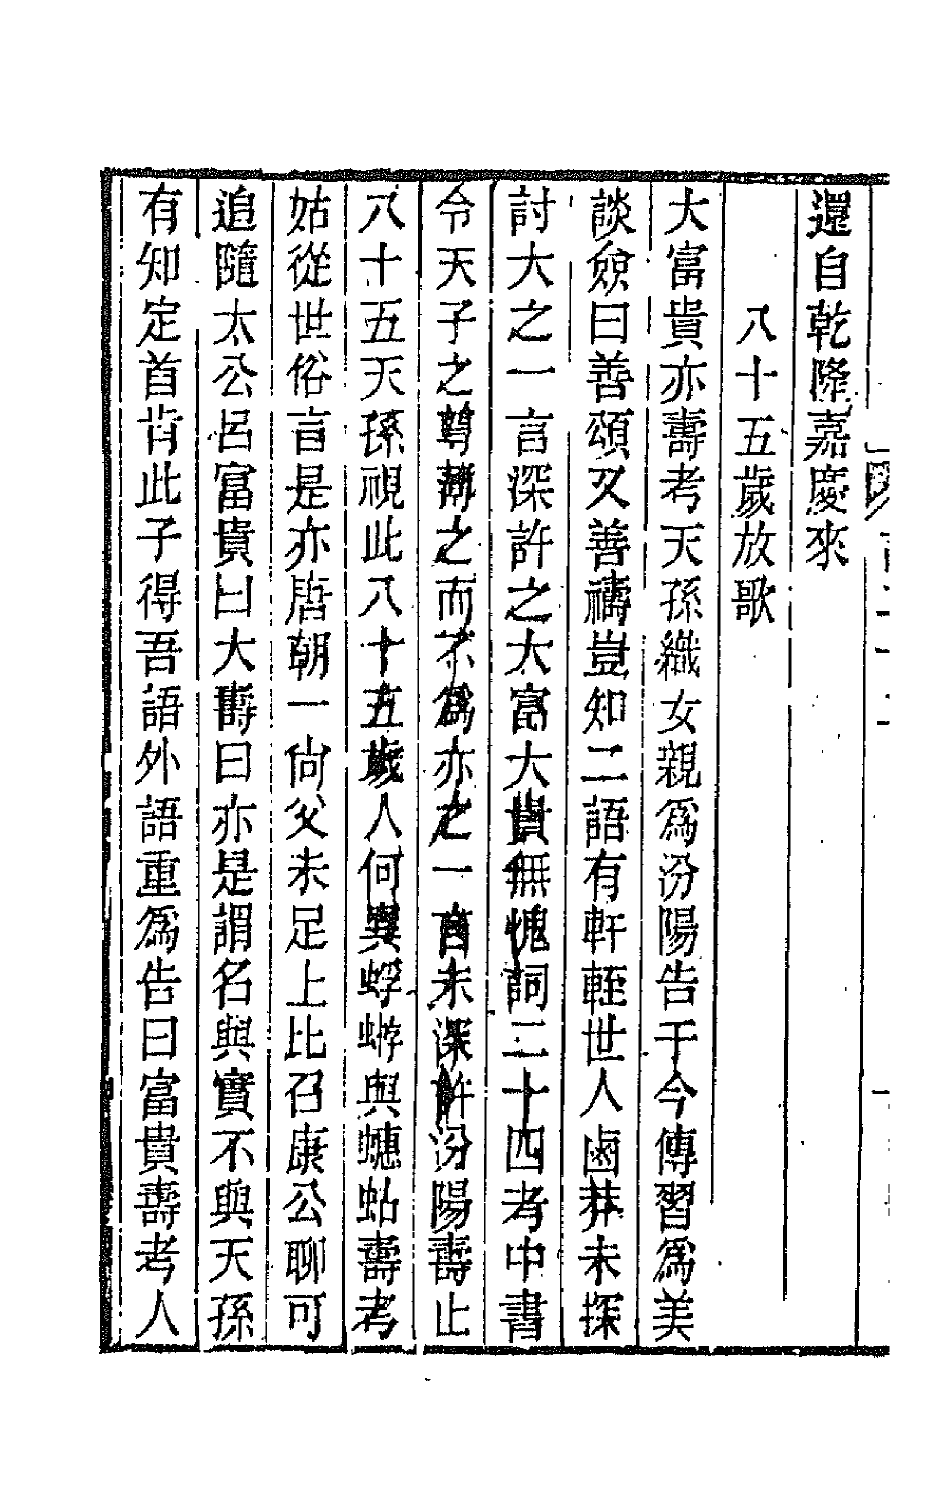 還自乾隆嘉慶來
八十五歲放歌
大富貴亦壽考天孫織女親爲汾陽告于今傳習爲美
談僉曰善頌又善禱豈知二語有軒輊世人鹵莽未探
討大之一言深許之大富大貴無愧詞二十四考中書
令天子之尊揣之而不爲亦之一言未深許汾陽壽止
八十五天孫視此八十五歲人何異蜉蝣與蟪蛄壽考
姑從世俗言是亦唐朝一尚父未足上比召康公聊可
追隨太公呂富貴曰大壽曰亦是謂名與實不與天孫
有知定首肯此子得吾語外語重爲告曰富貴壽考人